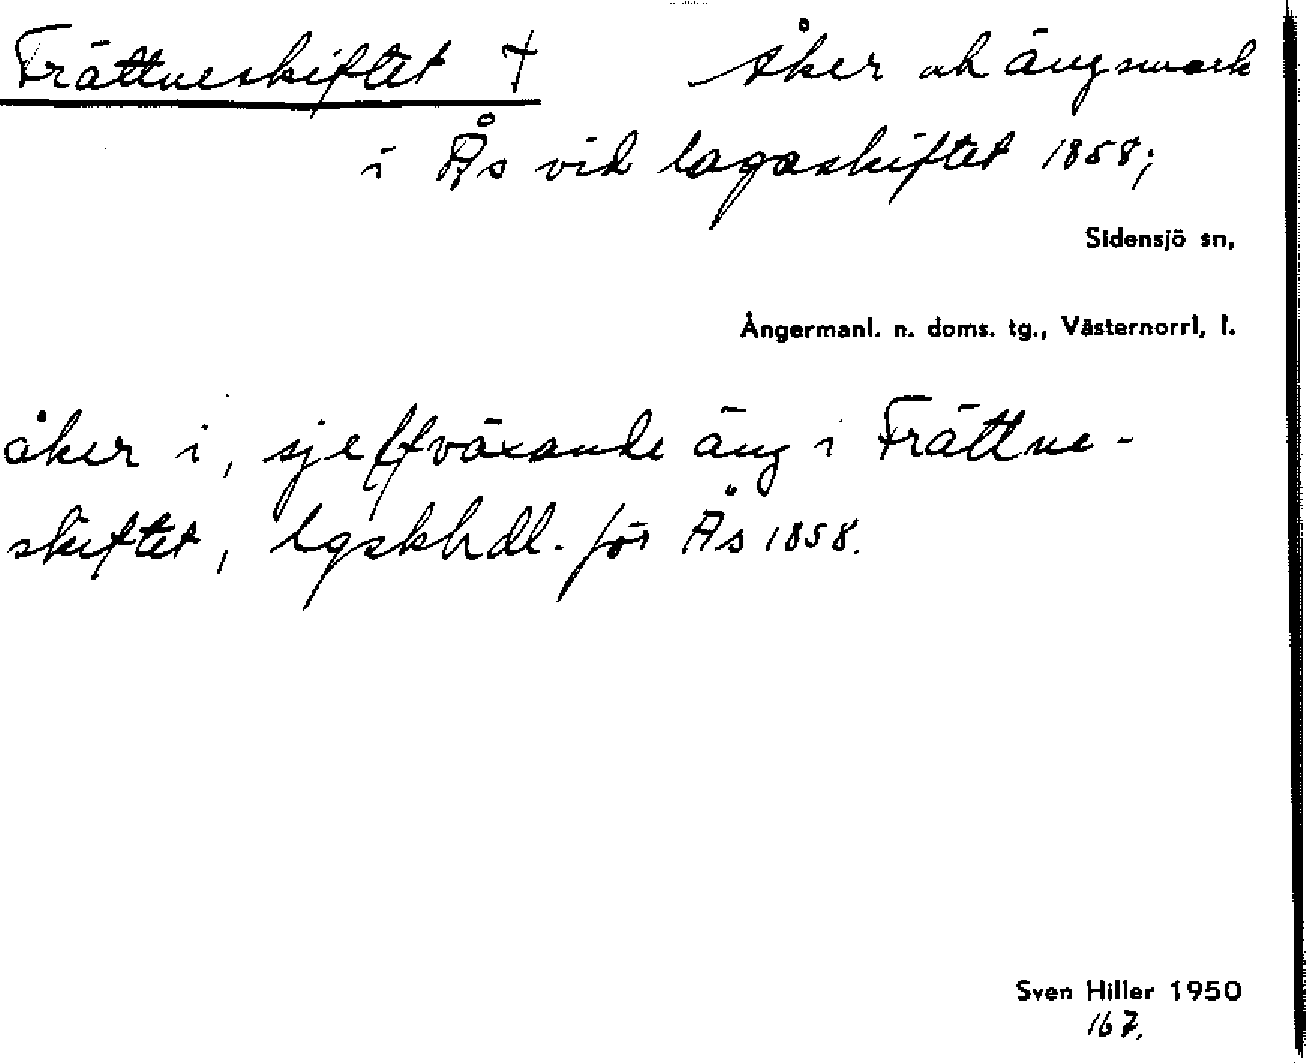 Frättneskiftet † Åker och ängsmark
i Ås vid lagaskiftet 1858;
Sidensjö sn,
Ångermanl. n. doms. tg., Västernorrl, l.
åker i, sjelfväxande äng i Frättne-
skiftet, lgskhdl. för Ås 1858.
Sven Hiller 1950
167.